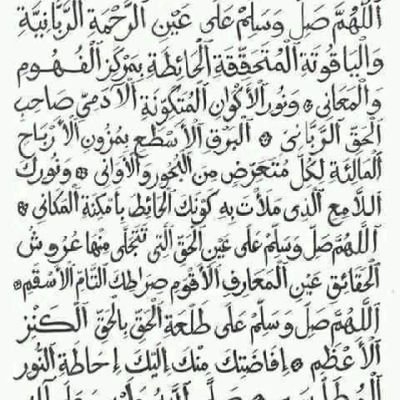 اَللَّهُمَّ صَلِّ وَسَلِّمْ عَلَى عَيْنِ اَلرَّحْمَةِ اَلرَّبَّانِيَّةِ
وَالْيَاقُوتَةِ اَلْمُتَحَقِّقَةِ اَلْحَائِطَةِ بِمَرْكَزِ اَلْفُهُومِ
وَالْمَعَانِي * وَنُورِ اَلْأَكْوَانِ اَلْمُتَكَوِّنَةِ اَلْآدَمِيِّ صَاحِبِ
اَلْحَقِّ اَلرَّبَّانِي * اَلْبَرْقِ اَلْأَسْطَعِ بِمُزُونِ اَلْأَرْبَاحِ
اَلْمَالِئَةِ لِكُلِّ مُتَعَرِّضٍ مِنَ اَلْبُحُورِ وَالْأَوَانِي * وَنُورِكَ
اَللَّامِعِ اَلَّذِي مَلَأْتَ بِهِ كَوْنَكَ اَلْحَائِطِ بِأَمْكِنَةِ اَلْمَكَانِي *
اَللَّهُمَّ صَلِّ وَسَلِّمْ عَلَى عَيْنِ اَلْحَقِّ اَلَّتِي تَتَجَلَّى مِنْهَا عُرُوشُ
اَلْحَقَائِقِ عَيْنِ اَلْمَعَارِفِ اَلْأَقْوَمِ صِرَاطِكَ اَلتَّامِّ اَلْأَسْقَمِ *
اَللَّهُمَّ صَلِّ وَسَلِّمْ عَلَى طَلْعَةِ اَلْحَقِّ بِالْحَقِّ اَلْكَنْزِ
اَلْأَعْظَمِ * إِفَاضَتِكَ مِنْكَ إِلَيْكَ إِحَاطَةِ اَلنُّورِ